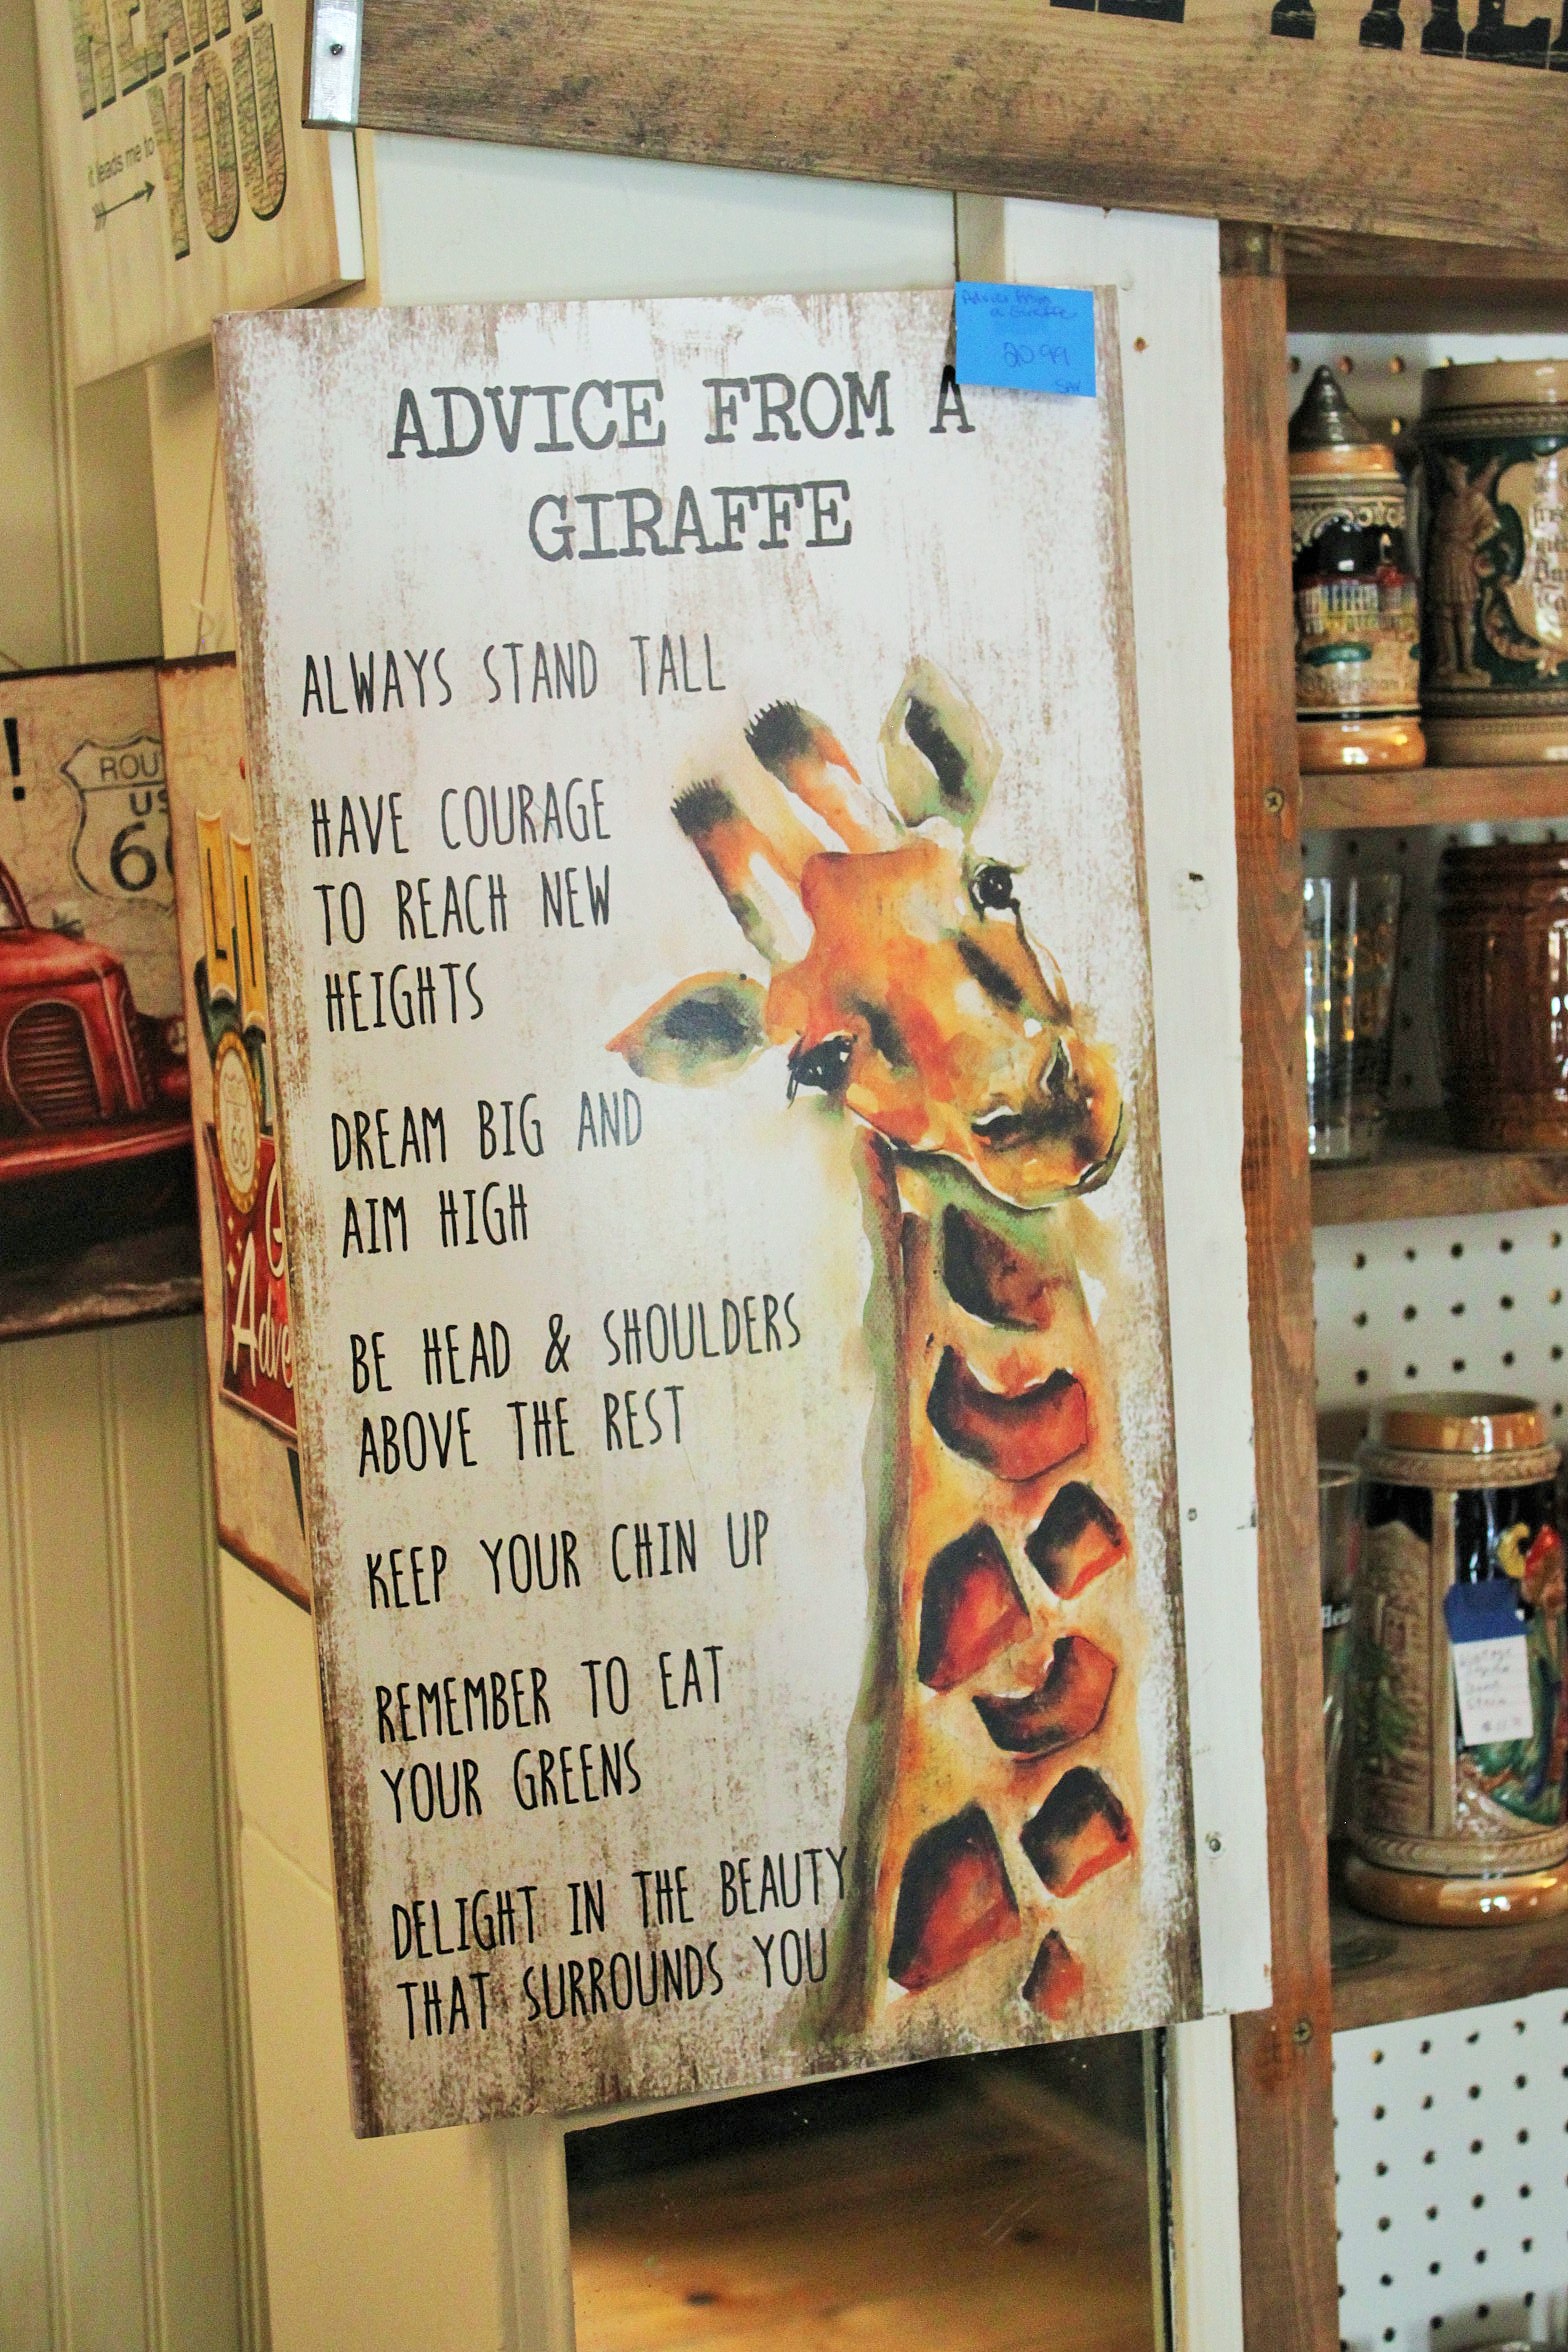 YOU
it leads me to
Advice from
a Giraffe
20.99
ADVICE FROM A
GIRAFFE
ALWAYS STAND TALL
HAVE COURAGE
TO REACH NEW
HEIGHTS
DREAM BIG AND
AIM HIGH
BE HEAD & SHOULDERS
ABOVE THE REST
KEEP YOUR CHIN UP
REMEMBER TO EAT
YOUR GREENS
DELIGHT IN THE BEAUTY
THAT SURROUNDS YOU
!
ROU
US
66